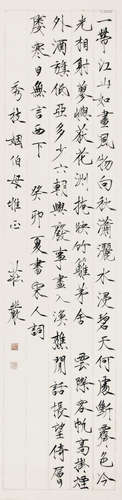 一帶江山如畫風物向秋瀟灑水浸碧天何處斷霽色冷
光相射蓼嶼荻花洲掩映竹籬茅舍 雲際客帆高掛煙
外酒旗低亞多少六朝興廢事盡入漁樵閒話悵望倚層
廔寒日無言西下 癸卯夏書宋人詞
秀枝姻伯母雅正 莊嚴